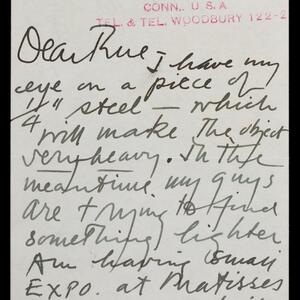 CONN., U. S. A
TEL. & TEL. WOODBURY 122-2
Dear Rue
I have my
eye on a piece of
1/4" steel — which
will make the object
very heavy. In the
meantime my guys
are trying to find
something lighter
Am having small
EXPO. at Matisses